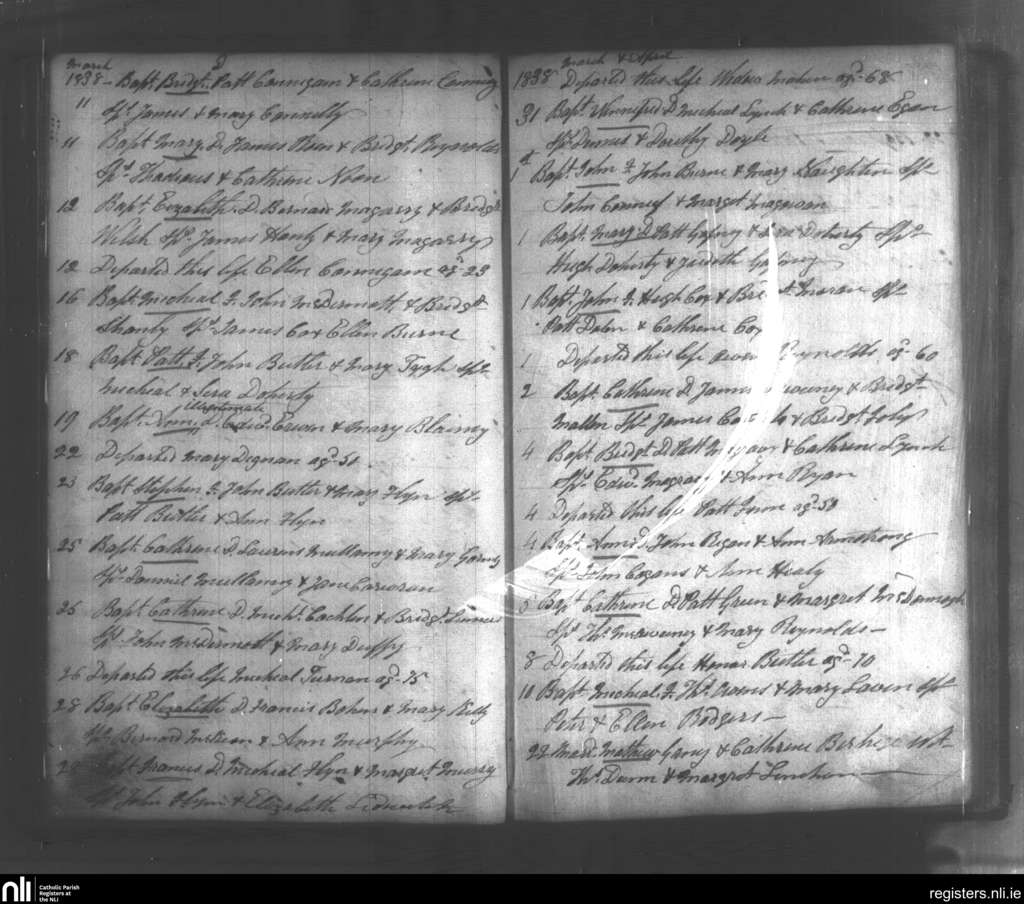 March
1838 - Bapt. Bridgt. D Patt Cannigam & Cathrine
11 Sps. James & Mary Connolly
11 Bapt. Mary D. James & Bridgt. Reynolds
Sps. Thadious & Cathrine Noon
12 Bapt. Elizabeth D Bernard Magarry & Bridgt
Welsh Sps. James Hanly & Mary Magarry
12 Departed this life Ellen Cannigam agd. 23
16 Bapt. Micheal F. John McDermott & Bridgt
Shanly Sps. James Cox Ellen Burne
18 Bapt. Patt F. John Butler & Mary Tygh Sps.
Micheal & Sera Doherty
19 Bapt. Ann Illegitimate d. Edwd. & Mary Blainy
22 Departed Mary Dignan agd. 50
23 Bapt Stephen F. John Butler & Mary Flyn Sps.
Patt Butler & Ann Flyn
25 Bapt. Cathrine D. Mullanny & Mary
Sps. Danniel Mullanny & Jane Corcoran
25 Bapt. Cathrine D. Michl. Cochlin & Bridgt.
Sps. John McDermott & Mary Duffy
26 Departed this life Micheal Tiernan agd. 75
28 Bapt Elizabeth D. Francis Bohan & Mary Kelly
Sps. Bernard & Ann Murphy
Bapt Francis D. Micheal Flyn & Margret Murry
Sps. John Flynn & Elizabeth
March & April
1838 Departed this life Widow Mahon agd. 68
31 Bapt. Winnifred D Micheal Lynch & Cathrine Egan
Sps. & Dorothy Doyle
A
1 Bapt. John F. John Burne & Mary Naughten Sps.
John & Margt. Magowan
1 Bapt. Mary D Patt Gafney & Doherty Sps.
Hugh Doherty & Judeth Gafney
1 Bapt. John F. Hugh Cox & Moran Sps.
Patt & Cathrene Cox
1 Departed this life Owen Reynolds agd. 60
2 Bapt. Cathrene D. James & Bridgt.
Mallon Sps. James & Bridgt Foly
4 Bapt. Bridgt. D. Patt & Cathrene Lynch
Sps. Edwd. & Ann Ryan
4 Departed this life Patt agd. 50
4 Bapt. Ann D. John Regan & Ann Armstrong
Sps. John Cozans & Ann Healy
5 Bapt Cathrene D. Patt Green & Margret McDonnogh
Sps. Ths. & Mary Reynolds -
8 Departed this life Honor Butler agd. 70
10 Bapt. Micheal F. Ths. & Mary Laven Sps.
Peter & Ellen Rodgers -
22 Mard. Mathew & Cathrene
Ths. Dunn & Margret
nli
Catholic Parish
Registers at
the NLI
registers.nli.ie